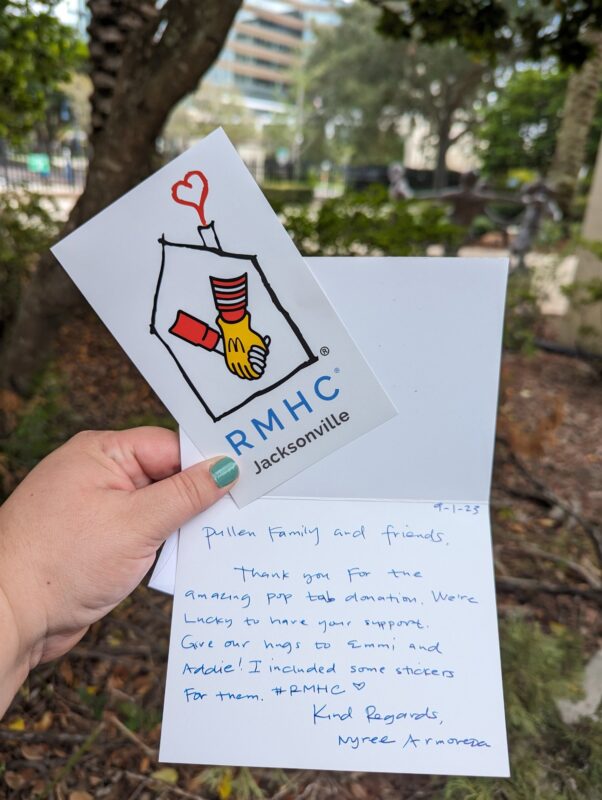 RMHC®
Jacksonville
9-1-23
Pullen Family and friends,
Thank you for the
amazing pop tab donation. We're
Lucky to have your support.
Give our hugs to Emmi and
Addie! I included some stickers
for them. #RMHC ♡
Kind Regards,
Nyree